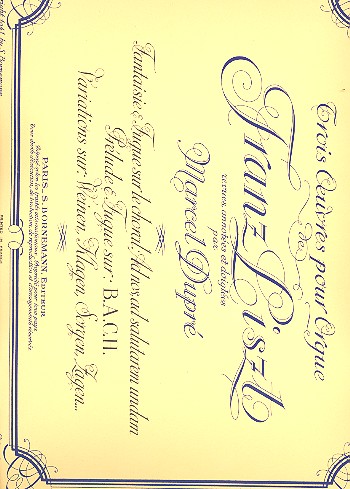 Trois Œuvres pour Orgue
de
Franz Liszt
revues, annotées et doigtées
par
Marcel Dupré
Fantaisie & Fugue sur le choral: Ad nos, ad salutarem undam
Prélude & Fugue sur: B.A.C.H.
Variations sur: Weinen, Klagen, Sorgen, Zagen...
PARIS_S. BORNEMANN, EDITEUR